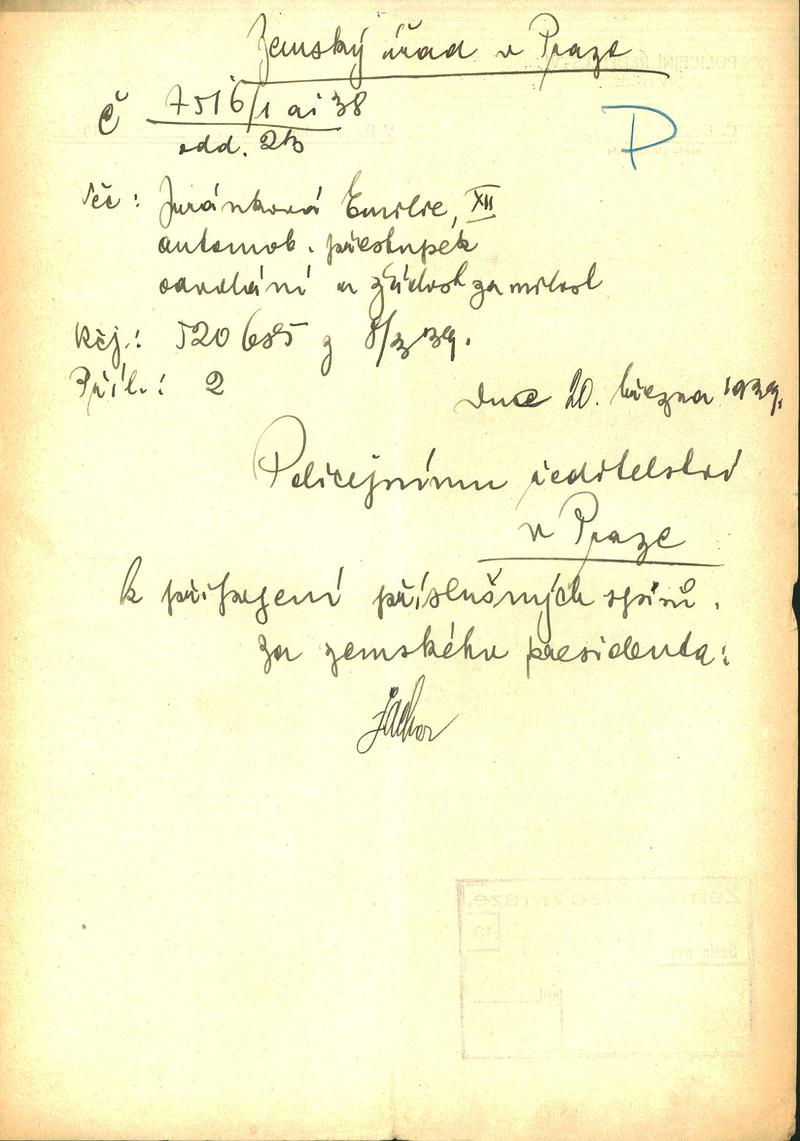 Zemský úřad v Praze
č 7516/1 ai 38
odd. 23
P
Věc: Juránková Emilie, XII
automob. přestupek
odvolání a žádost za milost
Kčj.: 520685 z 8/3 39.
Příl.: 2
dne 20. března 1939.
Policejnímu ředitelství
v Praze
k připojení příslušných spisů.
Za zemského presidenta: